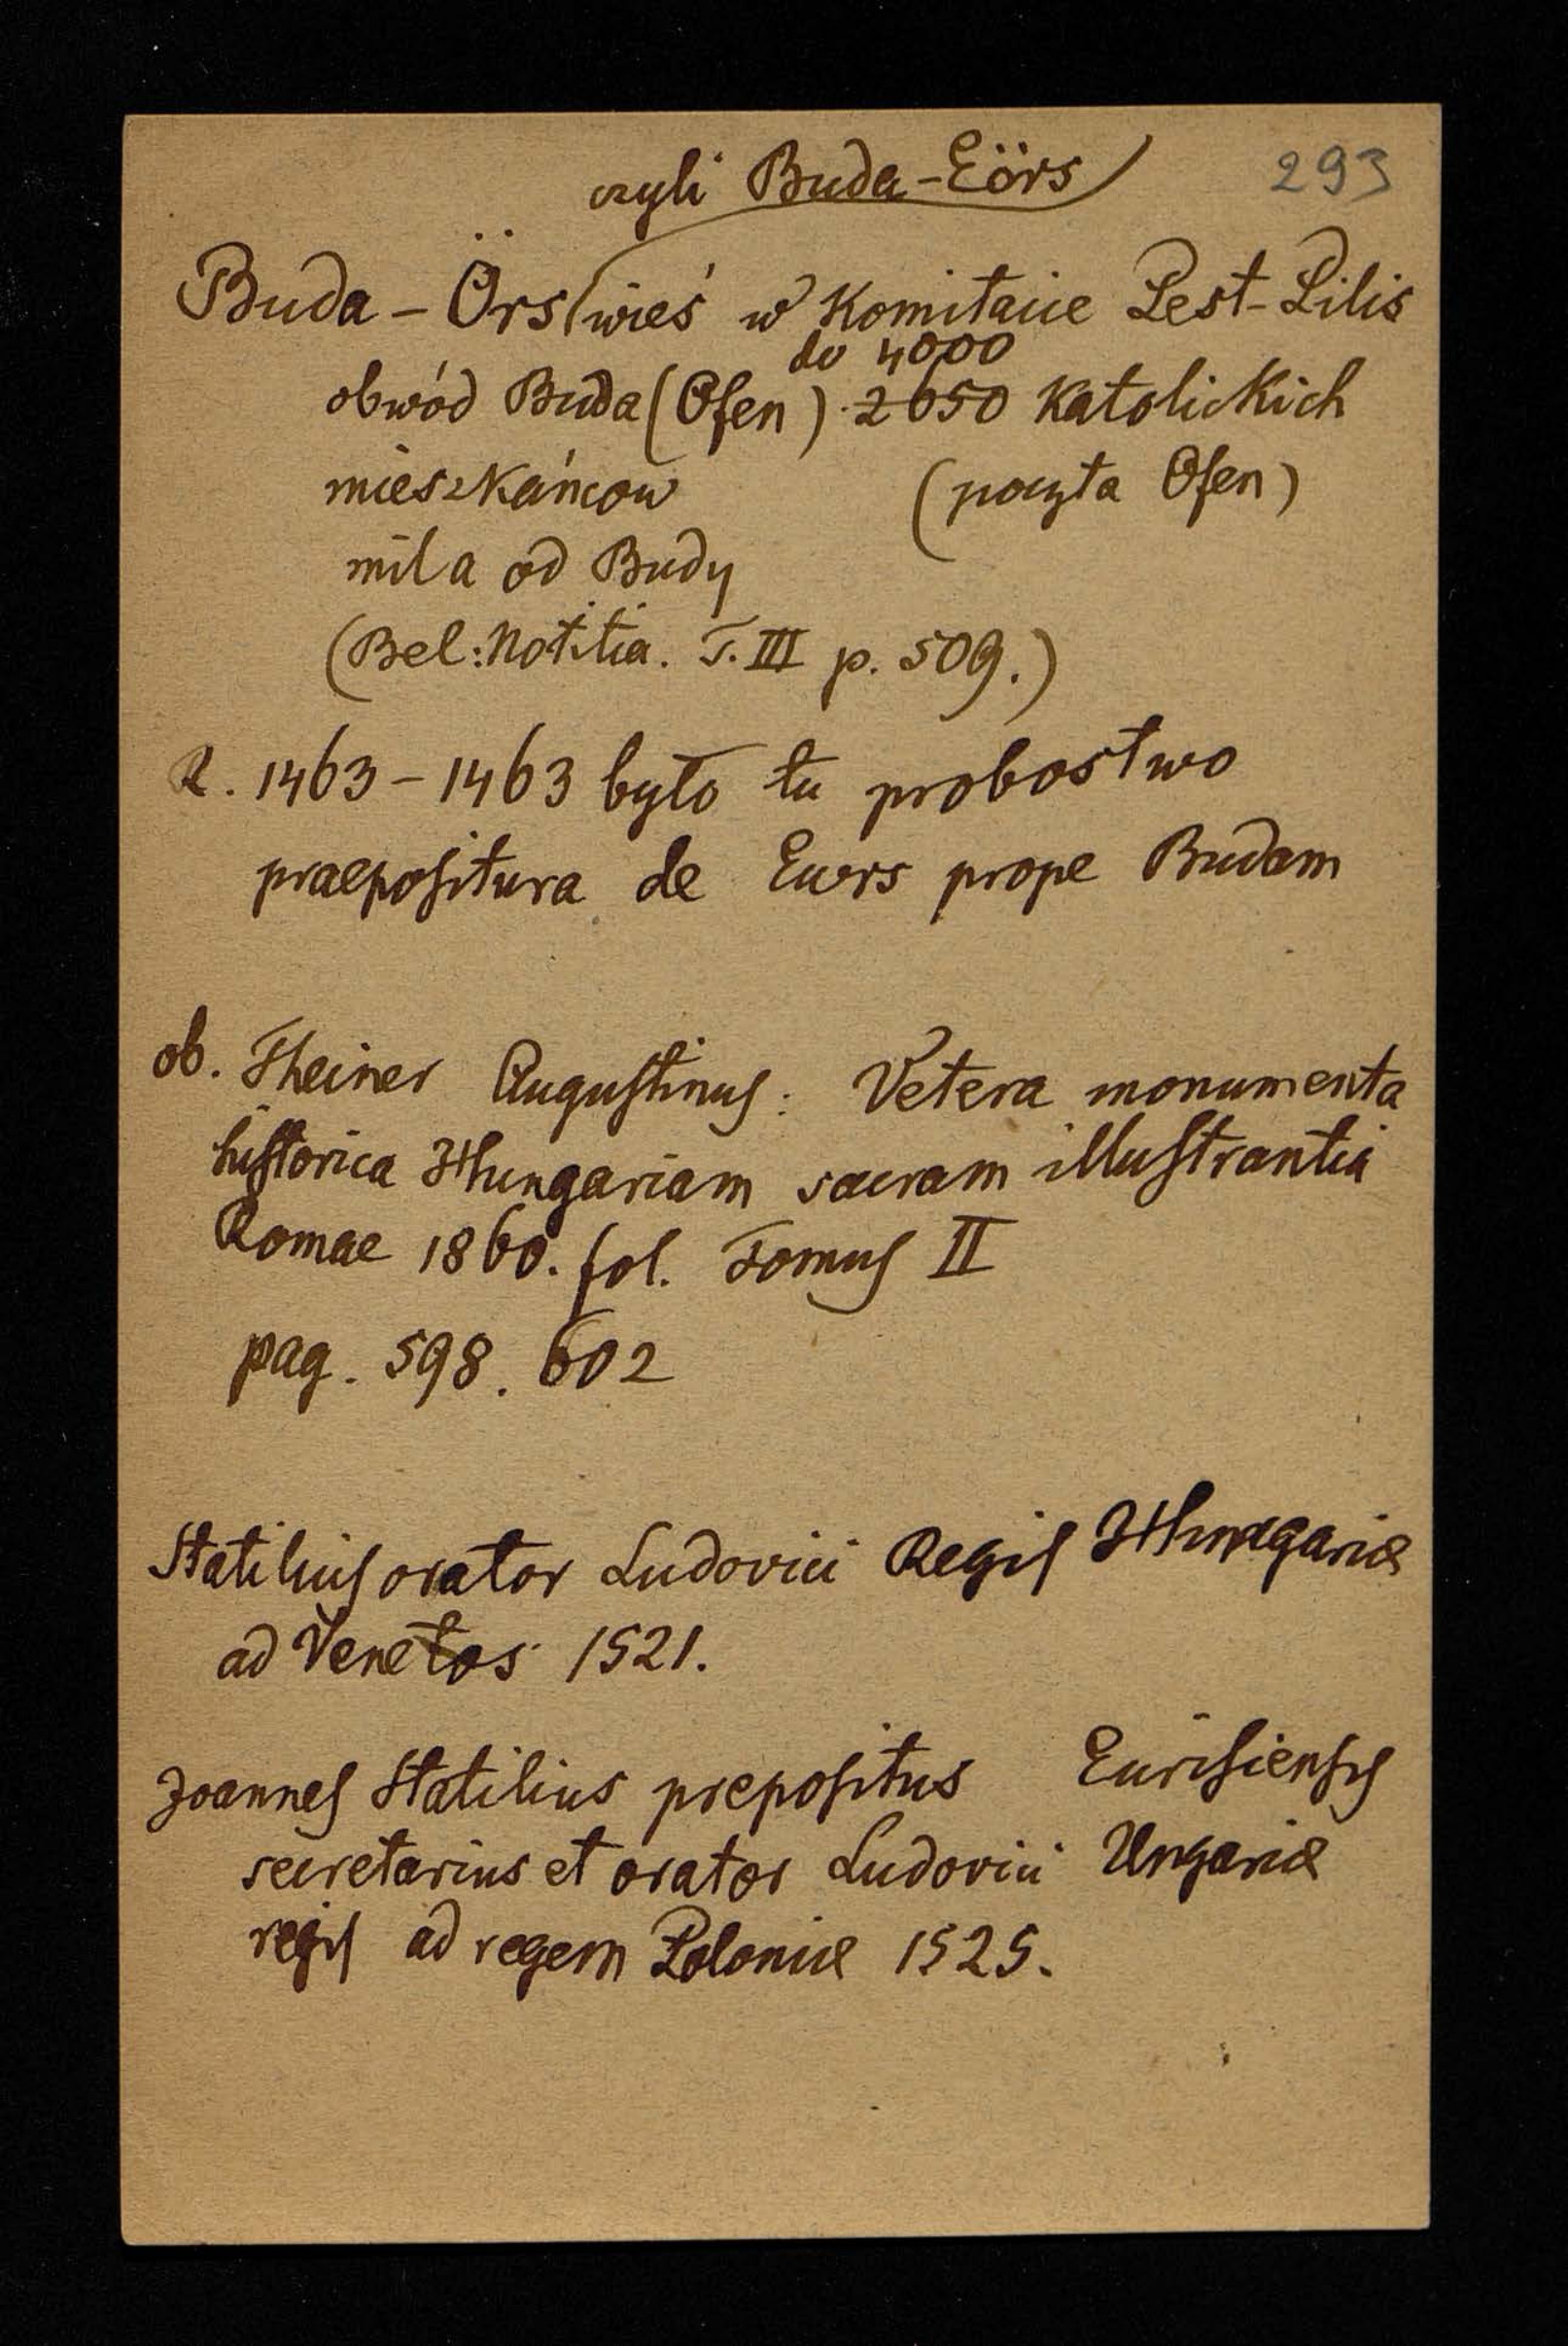 293
czyli Buda-Eörs
Buda-Örs wieś w Komitacie Pest-Pilis
do 4000
obwód Buda (Ofen) 2650 Katolickich
mieszkańcow (poczta Ofen)
mila od Budy
(Bel: Notitia. T. III p. 509.)
R. 1463-1463 było tu probostwo
praepositura de Ewrs prope Budam
ob. Theiner Augustinus: Vetera monumenta
historica Hungariam sacram illustrantia
Romae 1860. fol. Tomus II
pag. 598. 602
Statilius orator Ludovici Regis Hungariæ
ad Venetos 1521.
Joannes Statilius prepositus Eurisiensis
secretarius et orator Ludovici Ungariæ
regis ad regem Poloniæ 1525.